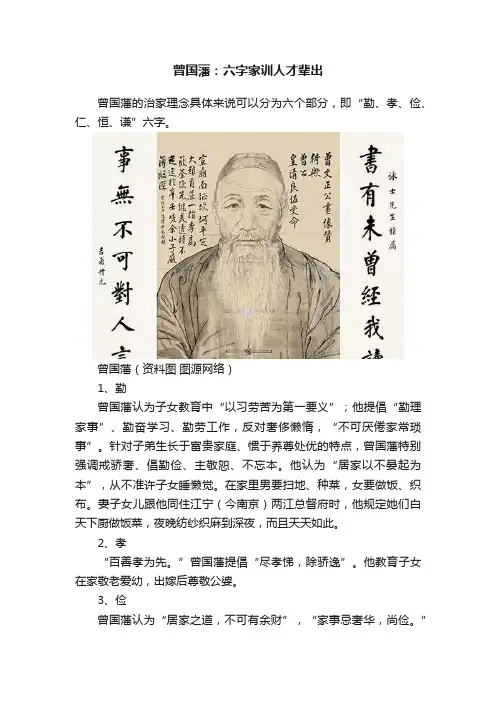 曾国藩：六字家训人才辈出
曾国藩的治家理念具体来说可以分为六个部分，即“勤、孝、俭、
仁、恒、谦”六字。
書有未曾經我讀
曾文正公畫像贊
曾公
皇清良佐受命
事無不可對人言
曾国藩（资料图 图源网络）
1、勤
曾国藩认为子女教育中“以习劳苦为第一要义”；他提倡“勤理
家事”、勤奋学习、勤劳工作，反对奢侈懒惰，“不可厌倦家常琐
事”。针对子弟生长于富贵家庭、惯于养尊处优的特点，曾国藩特别
强调戒骄奢、倡勤俭、主敬恕、不忘本。他认为“居家以不晏起为
本”，从不准许子女睡懒觉。在家里男要扫地、种菜，女要做饭、织
布。妻子女儿跟他同住江宁（今南京）两江总督府时，他规定她们白
天下厨做饭菜，夜晚纺纱织麻到深夜，而且天天如此。
2、孝
“百善孝为先。”曾国藩提倡“尽孝悌，除骄逸”。他教育子女
在家敬老爱幼，出嫁后尊敬公婆。
3、俭
曾国藩认为“居家之道，不可有余财”，“家事忌奢华，尚俭。”